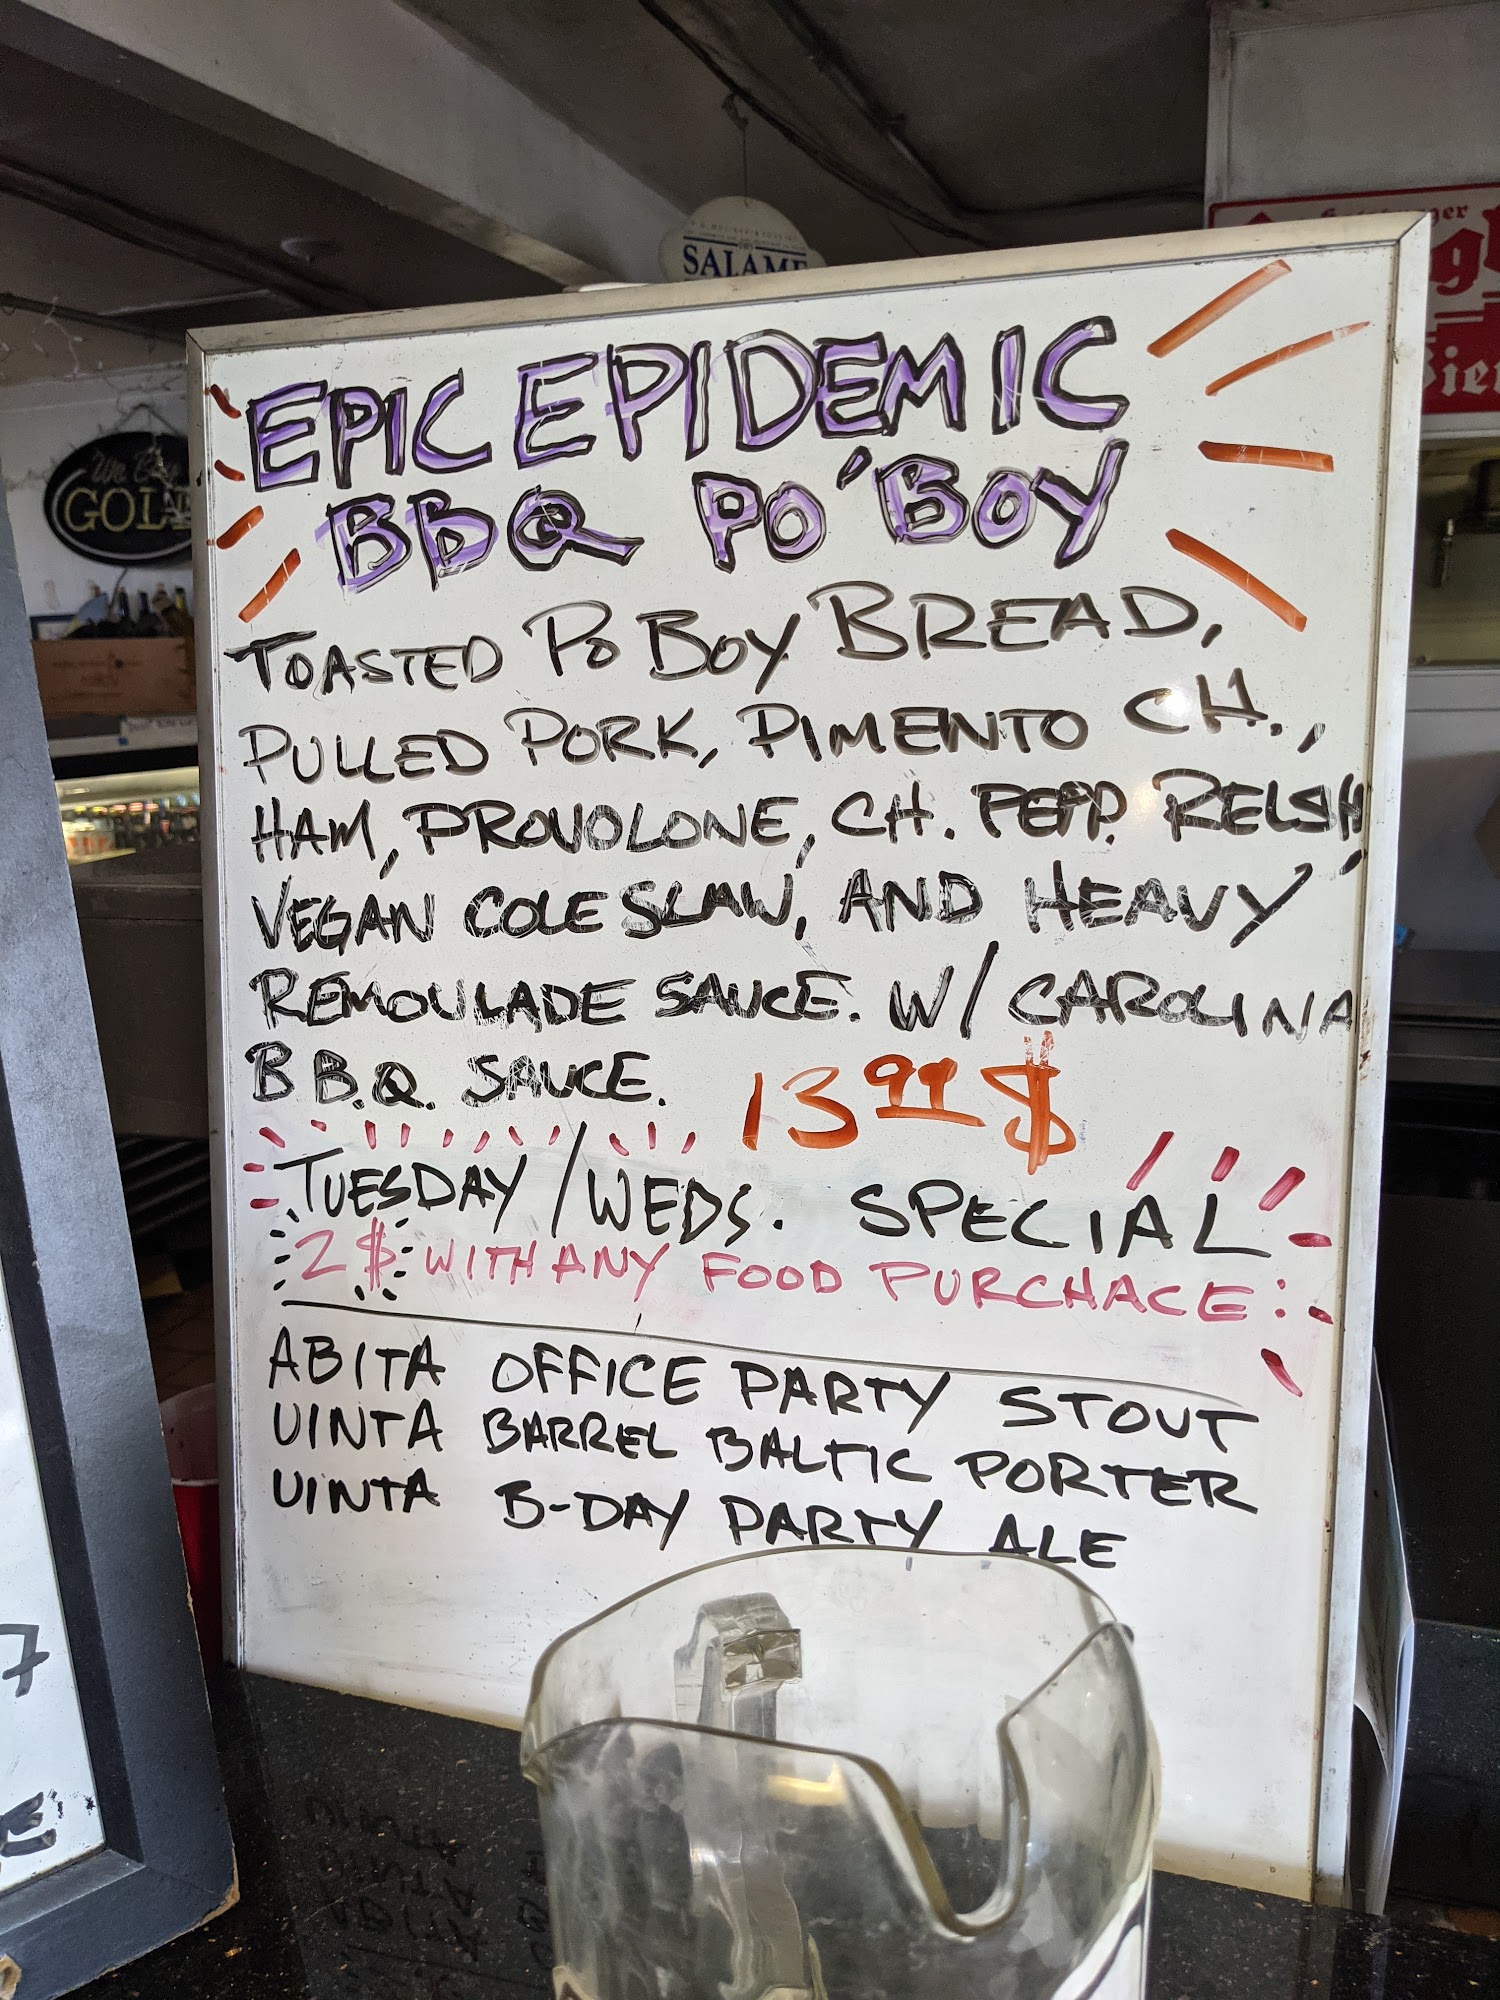 SALAME
We Buy
GOLD
EPIC EPIDEMIC
BBQ PO'BOY
TOASTED PO BOY BREAD,
PULLED PORK, PIMENTO CH.,
HAM, PROVOLONE, CH. PEPP. RELSH,
VEGAN COLESLAW, AND HEAVY
REMOULADE SAUCE. W/ CAROLINA
B.B.Q. SAUCE. 13.99 $
TUESDAY/WEDS. SPECIAL
2$ WITH ANY FOOD PURCHACE:
ABITA OFFICE PARTY STOUT
UINTA BARREL BALTIC PORTER
UINTA B-DAY PARTY ALE
7
E